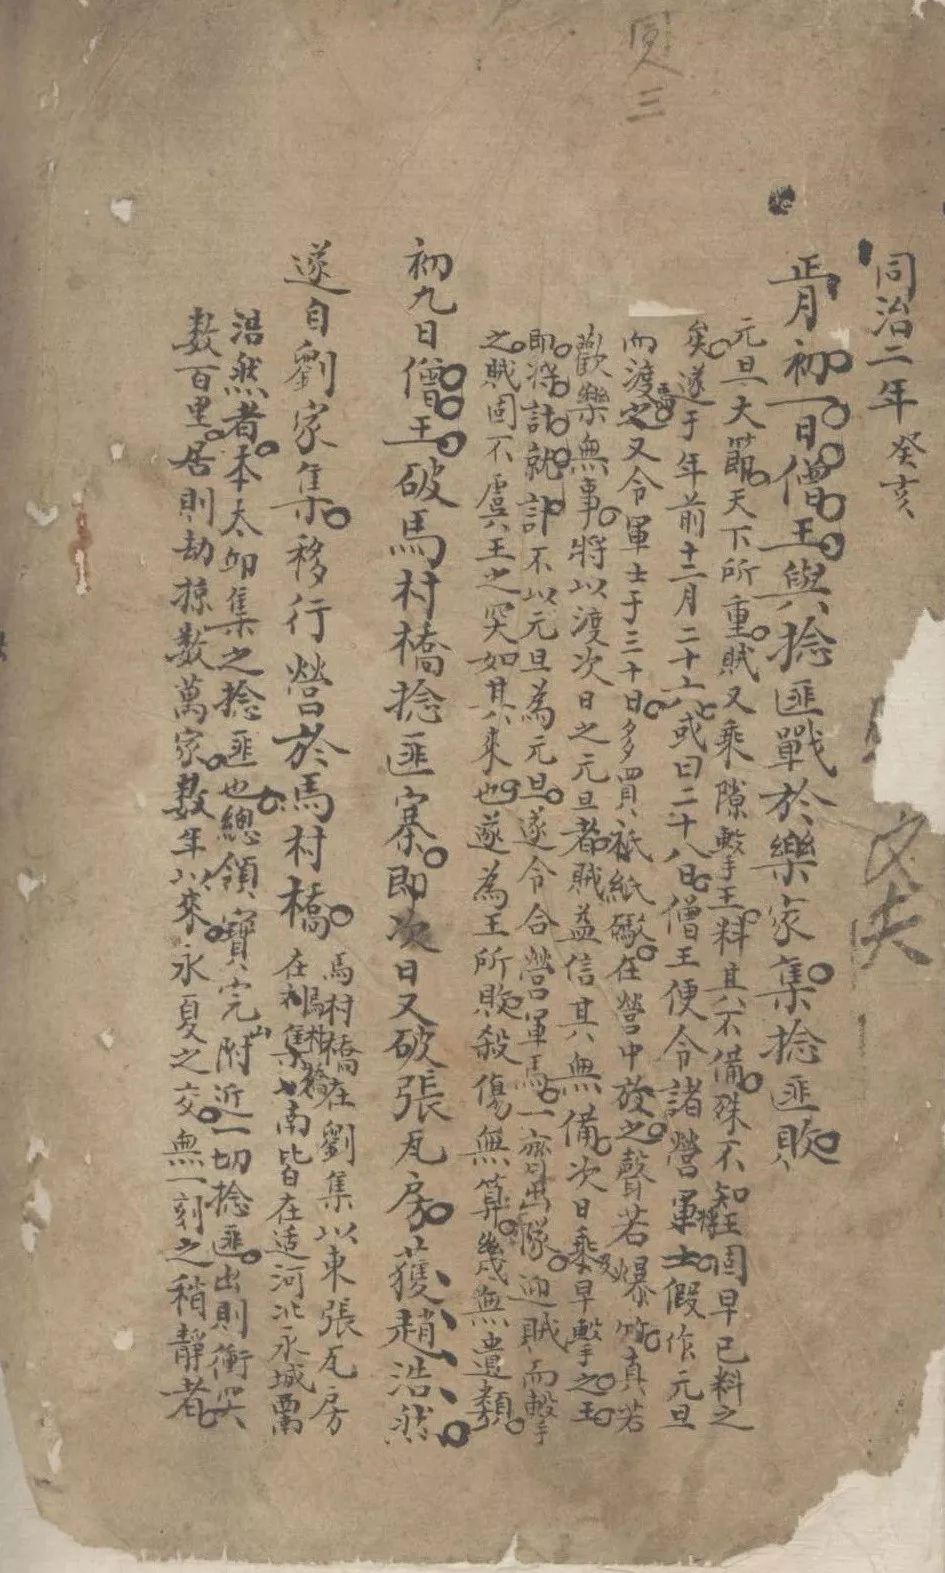 同治二年 癸亥
正月初一日僧王與捻匪戰於樂家集捻匪敗
元旦大節天下所重賊又乘隙擊王料其不備殊不知王固早已料之
矣遂于年前十二月二十六或曰二十八日僧王便令諸營軍士假作元旦
而渡之又令軍士于三十日多買祗紙礮在營中放之聲若爆竹真若
歡樂無事將以渡次日之元旦者賊益信其無備次日乘早擊之王
即將計就計不以元旦為元旦遂令合營軍馬一齊出隊迎賊而擊
之賊固不虞王之突如其來也遂為王所敗殺傷無算幾無遺類
初九日僧王破馬村橋捻匪寨即次日又破張瓦房獲趙浩然
遂自劉家集移行營於馬村橋
馬村橋在劉集以東張瓦房
在馬村橋南皆在適河北永城西
浩然者本太邱集之捻匪也總領寶完附近一切捻匪出則衝突
数百里居則劫掠数萬家数年以來永夏之交無一刻之稍靜者